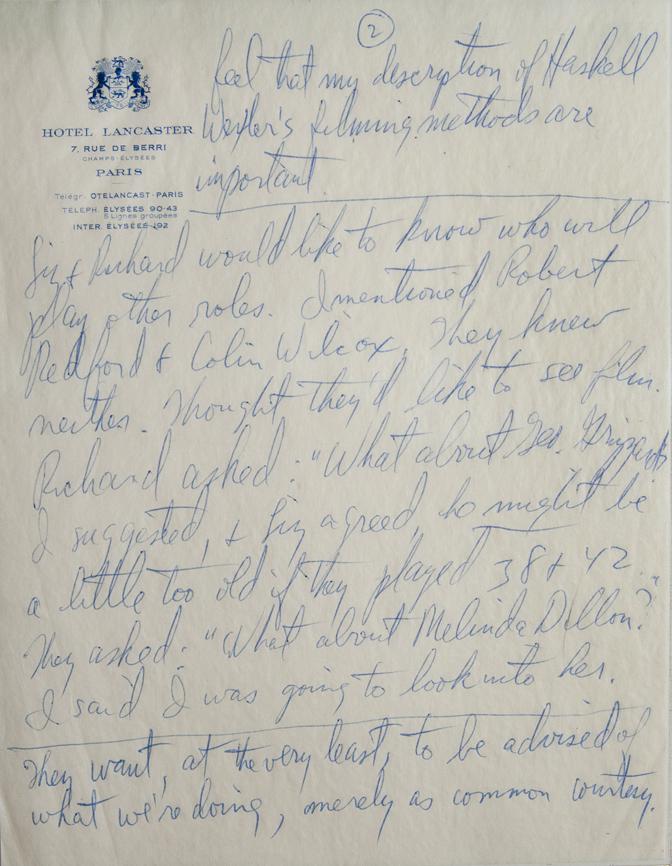 2
feel that my description of Haskell
Wexler's filming methods are
important
HOTEL LANCASTER
7. RUE DE BERRI
CHAMPS-ÉLYSÉES
PARIS
Télégr. OTELANCAST-PARIS
TÉLÉPH. ÉLYSÉES 90-43
5 Lignes groupées
INTER. ÉLYSÉES 192
Liz & Richard would like to know who will
play other roles. I mentioned Robert
Redford & Colin Wilcox. They knew
neither. Thought they'd like to see film.
Richard asked: "What about Geo. Grizzard
I suggested, & Liz agreed, he might be
a little too old if they played 38 & 42..
They asked: "What about Melinda Dillon?"
I said I was going to look into her.
They want, at the very least, to be advised of
what we're doing, merely as common courtesy.